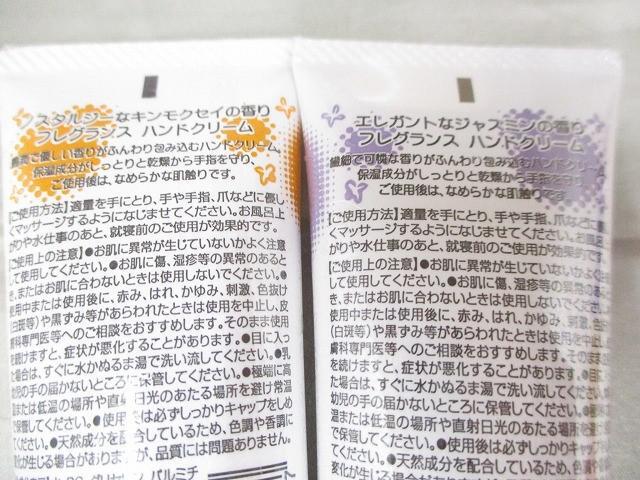 スタルジーなキンモクセイの香り
フレグランス ハンドクリーム
で優しい香りがふんわり包み込むハンドクリーム。
保湿成分がしっとりと乾燥から手指を守り、
ご使用後は、なめらかな肌触りです。
【ご使用方法】適量を手にとり、手や手指、爪などに優し
くマッサージするようになじませてください。お風呂上
がりや水仕事のあと、就寝前のご使用が効果的です。
【ご使用上の注意】●お肌に異常が生じていないかよく注意
して使用してください。●お肌に傷、湿疹等の異常のあると
き、またはお肌に合わないときは使用しないでください。●
使用中または使用後に、赤み、はれ、かゆみ、刺激、色抜け
(白斑等)や黒ずみ等があらわれたときは使用を中止し、皮
膚科専門医等へのご相談をおすすめします。そのまま使用
を続けますと、症状が悪化することがあります。●目に入っ
た場合は、すぐに水かぬるま湯で洗い流してください。●乳
幼児の手の届かないところに保管してください。●極端に高
温または低温の場所や直射日光のあたる場所を避け常温
で保管してください。●使用後は必ずしっかりキャップをしめ
てください。●天然成分を配合しているため、色調や香調に
変化が生じる場合がありますが、品質には問題ありません。
エレガントなジャスミンの香り
フレグランス ハンドクリーム
繊細で可憐な香りがふんわり包み込むハンドクリーム。
保湿成分がしっとりと乾燥から手指を守り、
ご使用後は、なめらかな肌触りです。
【ご使用方法】適量を手にとり、手や手指、爪などに優し
くマッサージするようになじませてください。お風呂
がりや水仕事のあと、就寝前のご使用が効果的です
【ご使用上の注意】●お肌に異常が生じていないかよく
して使用してください。●お肌に傷、湿疹等の異常の
き、またはお肌に合わないときは使用しないでくださ
使用中または使用後に、赤み、はれ、かゆみ、刺激、色
(白斑等)や黒ずみ等があらわれたときは使用を中止
膚科専門医等へのご相談をおすすめします。そのまま
を続けますと、症状が悪化することがあります。●目
た場合は、すぐに水かぬるま湯で洗い流してください
幼児の手の届かないところに保管してください。●
温または低温の場所や直射日光のあたる場所を避
で保管してください。●使用後は必ずしっかりキャップ
てください。●天然成分を配合しているため、色調
変化が生じる場合がありますが、品質には問題